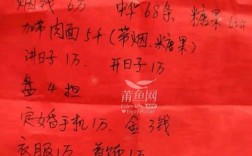 烟钱 6万 中华 68条 糖果
加带肉面5斗(带烟.糖果)
进日子1万 开日子1万
盘4担
莆鱼网
定婚手机1万 金3钱
衣服1万 首饰1万